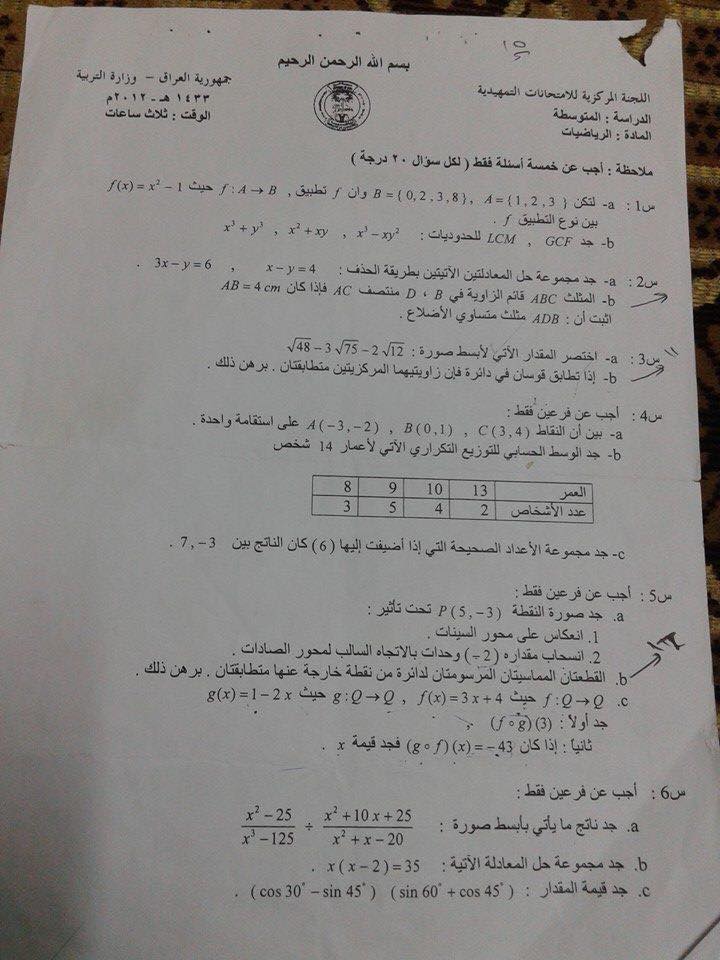 ١٥
بسم الله الرحمن الرحيم
اللجنة المركزية للامتحانات التمهيدية
جمهورية العراق – وزارة التربية
الدراسة : المتوسطة
١٤٣٣ هـ - ٢٠١٢م
المادة : الرياضيات
الوقت : ثلاث ساعات
ملاحظة : أجب عن خمسة أسئلة فقط ( لكل سؤال ٢٠ درجة )
س1 : a- لتكن A = { 1 , 2 , 3 } , B = { 0 , 2 , 3 , 8 } وان f تطبيق , f : A → B حيث f(x) = x² − 1
بين نوع التطبيق f .
b- جد GCF , LCM للحدوديات : x³ − xy² , x² + xy , x³ + y³
س2 : a- جد مجموعة حل المعادلتين الآتيتين بطريقة الحذف : x − y = 4 , 3x − y = 6 .
b- المثلث ABC قائم الزاوية في B ، D منتصف AC فإذا كان AB = 4 cm
اثبت أن : ADB مثلث متساوي الأضلاع .
س3 : a- اختصر المقدار الآتي لأبسط صورة : √48 − 3√75 − 2√12
b- إذا تطابق قوسان في دائرة فإن زاويتيهما المركزيتين متطابقتان . برهن ذلك .
س4 : أجب عن فرعين فقط :
a- بين أن النقاط A ( −3 , −2 ) , B ( 0 , 1 ) , C ( 3 , 4 ) على استقامة واحدة .
b- جد الوسط الحسابي للتوزيع التكراري الآتي لأعمار 14 شخص
العمر 13 10 9 8
عدد الأشخاص 2 4 5 3
c- جد مجموعة الأعداد الصحيحة التي إذا أضيفت إليها ( 6 ) كان الناتج بين 7 , −3 .
س5 : أجب عن فرعين فقط :
a. جد صورة النقطة P ( 5 , −3 ) تحت تأثير :
1. انعكاس على محور السينات .
2. انسحاب مقداره ( −2 ) وحدات بالاتجاه السالب لمحور الصادات .
b. القطعتان المماسيتان المرسومتان لدائرة من نقطة خارجة عنها متطابقتان . برهن ذلك .
c. f : Q → Q حيث f(x) = 3x + 4 , g : Q → Q حيث g(x) = 1 − 2x
جد أولاً : (f ∘ g) (3)
ثانياً : إذا كان (g ∘ f) (x) = −43 فجد قيمة x .
س6 : أجب عن فرعين فقط :
a. جد ناتج ما يأتي بأبسط صورة : (x² − 25)/(x³ − 125) ÷ (x² + 10x + 25)/(x² + x − 20)
b. جد مجموعة حل المعادلة الآتية : x ( x − 2 ) = 35 .
c. جد قيمة المقدار : ( cos 30° − sin 45° ) ( sin 60° + cos 45° ) .